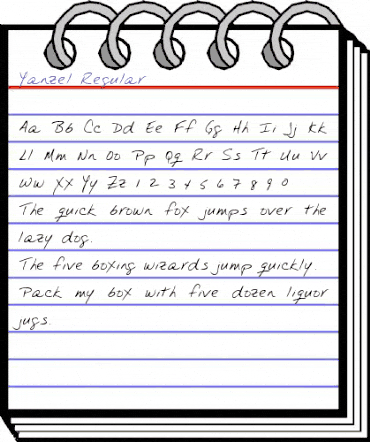 Yanzel Regular
Aa Bb Cc Dd Ee Ff Gg Hh Ii Jj Kk
Ll Mm Nn Oo Pp Qq Rr Ss Tt Uu Vv
Ww Xx Yy Zz 1 2 3 4 5 6 7 8 9 0
The quick brown fox jumps over the
lazy dog.
The five boxing wizards jump quickly.
Pack my box with five dozen liquor
jugs.